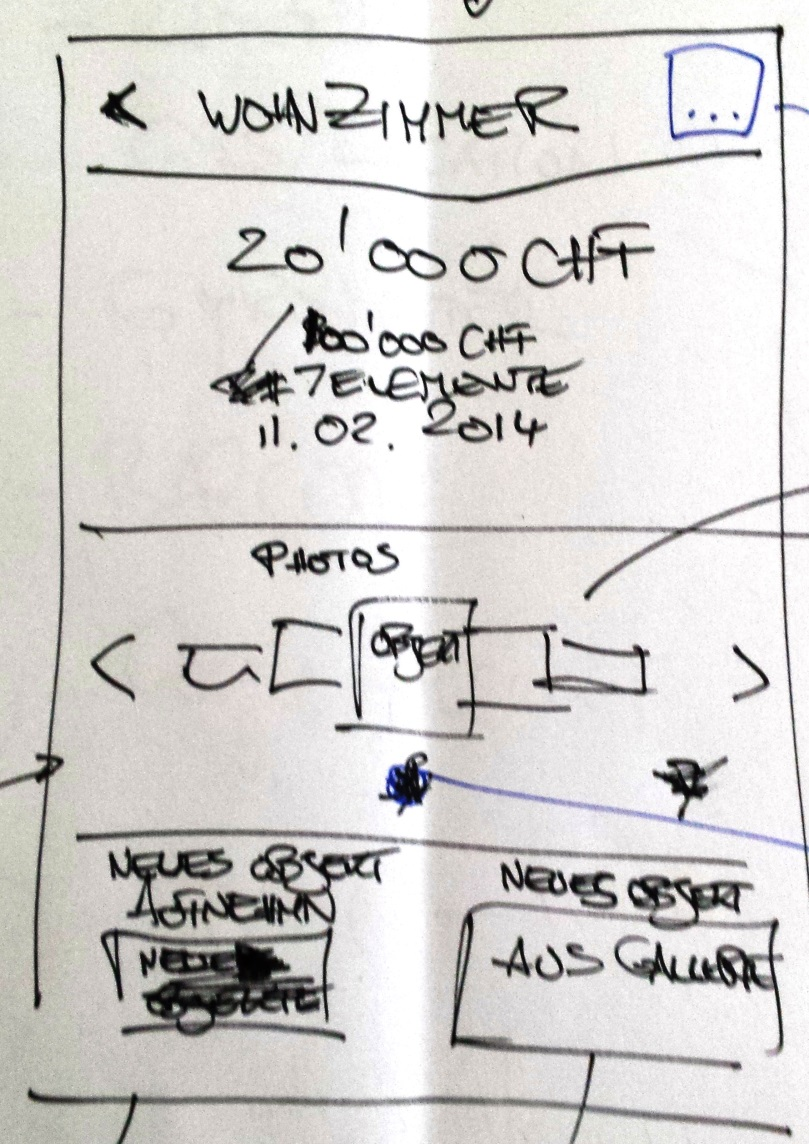 < WOHNZIMMER ...
20'000 CHF
00'000 CHF
# 7 ELEMENTE
11. 02. 2014
PHOTOS
< OBJEKT >
NEUES OBJEKT
AUFNEHMN
NEUE
OBJEKTE
NEUES OBJEKT
AUS GALLERIE